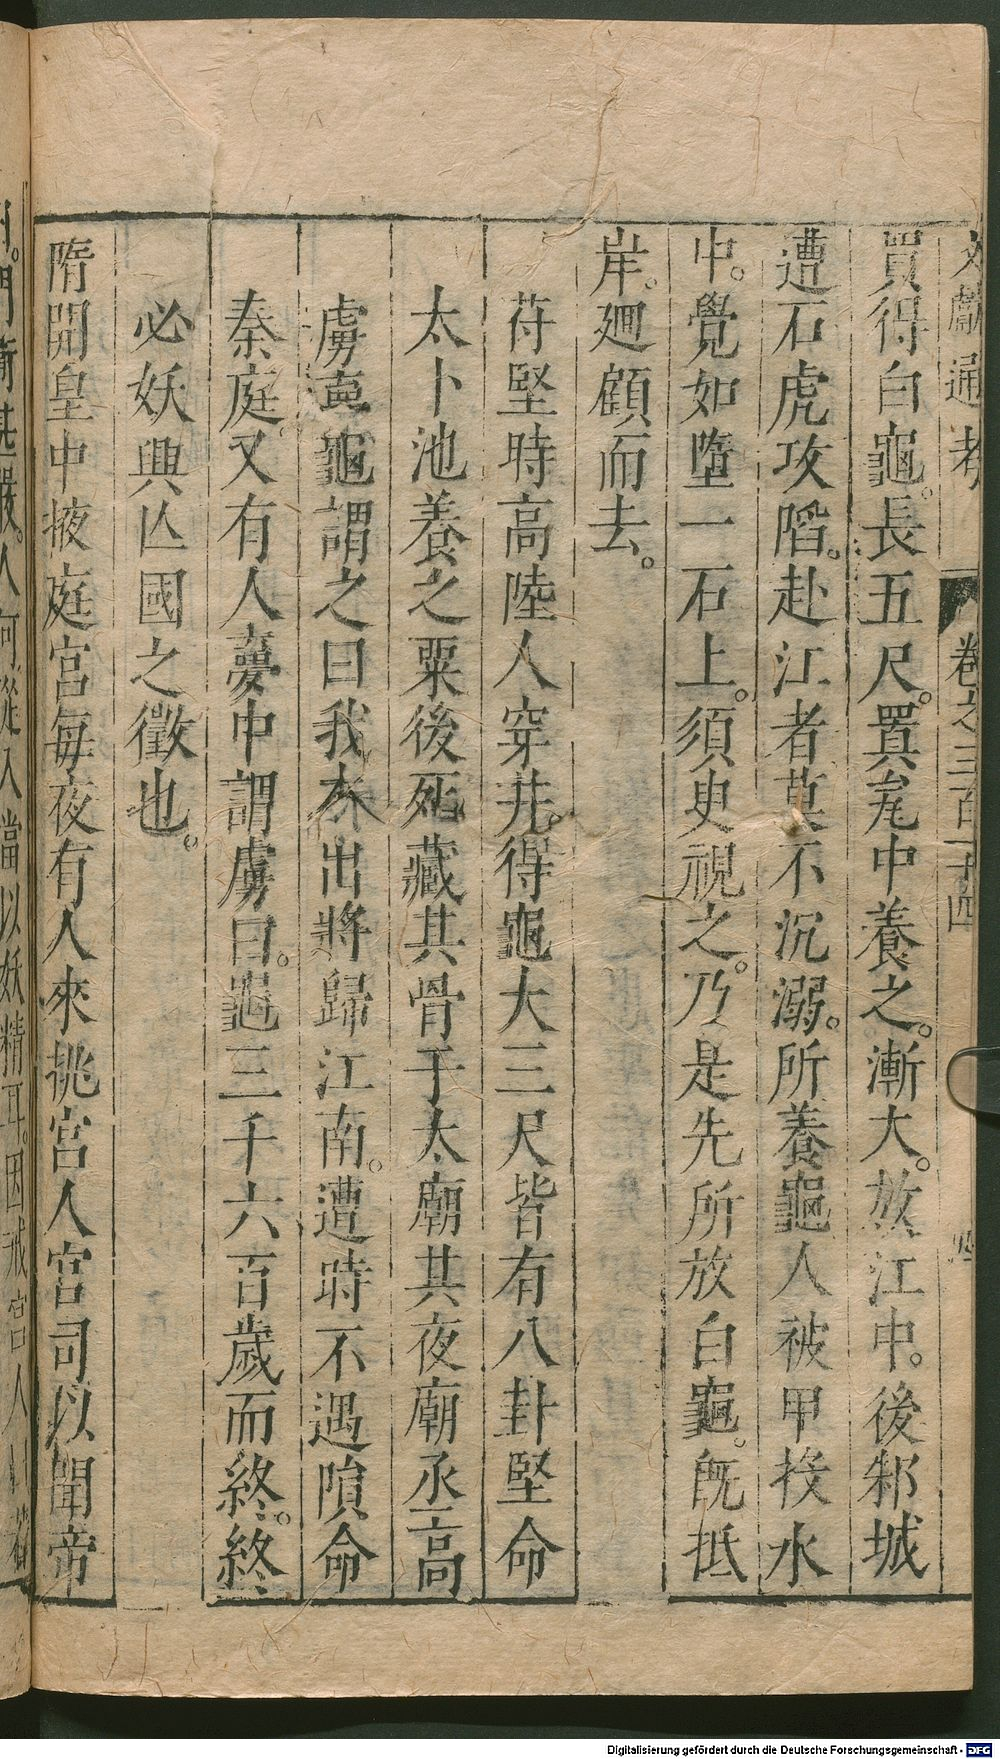 文獻通考 卷之三百十四 四
買得白龜。長五尺。置瓮中養之。漸大。放江中。後邾城
遭石虎攻陷。赴江者莫不沉溺。所養龜人被甲投水
中。覺如墮一石上。須臾視之。乃是先所放白龜。旣抵
岸。廻顧而去。
苻堅時高陸人穿井。得龜大三尺皆有八卦堅命
太卜池養之粟後死藏其骨于太廟其夜廟丞高
虜夢龜謂之曰我本出將歸江南。遭時不遇隕命
秦庭。又有人夢中謂虜曰。龜三千六百歲而終。終
必妖興亾國之徵也。
隋開皇中掖庭宮每夜有人來挑宮人宮司以聞帝
門衛甚嚴。人何從入當以妖精耳。因戒宮人曰若
Digitalisierung gefördert durch die Deutsche Forschungsgemeinschaft - DFG